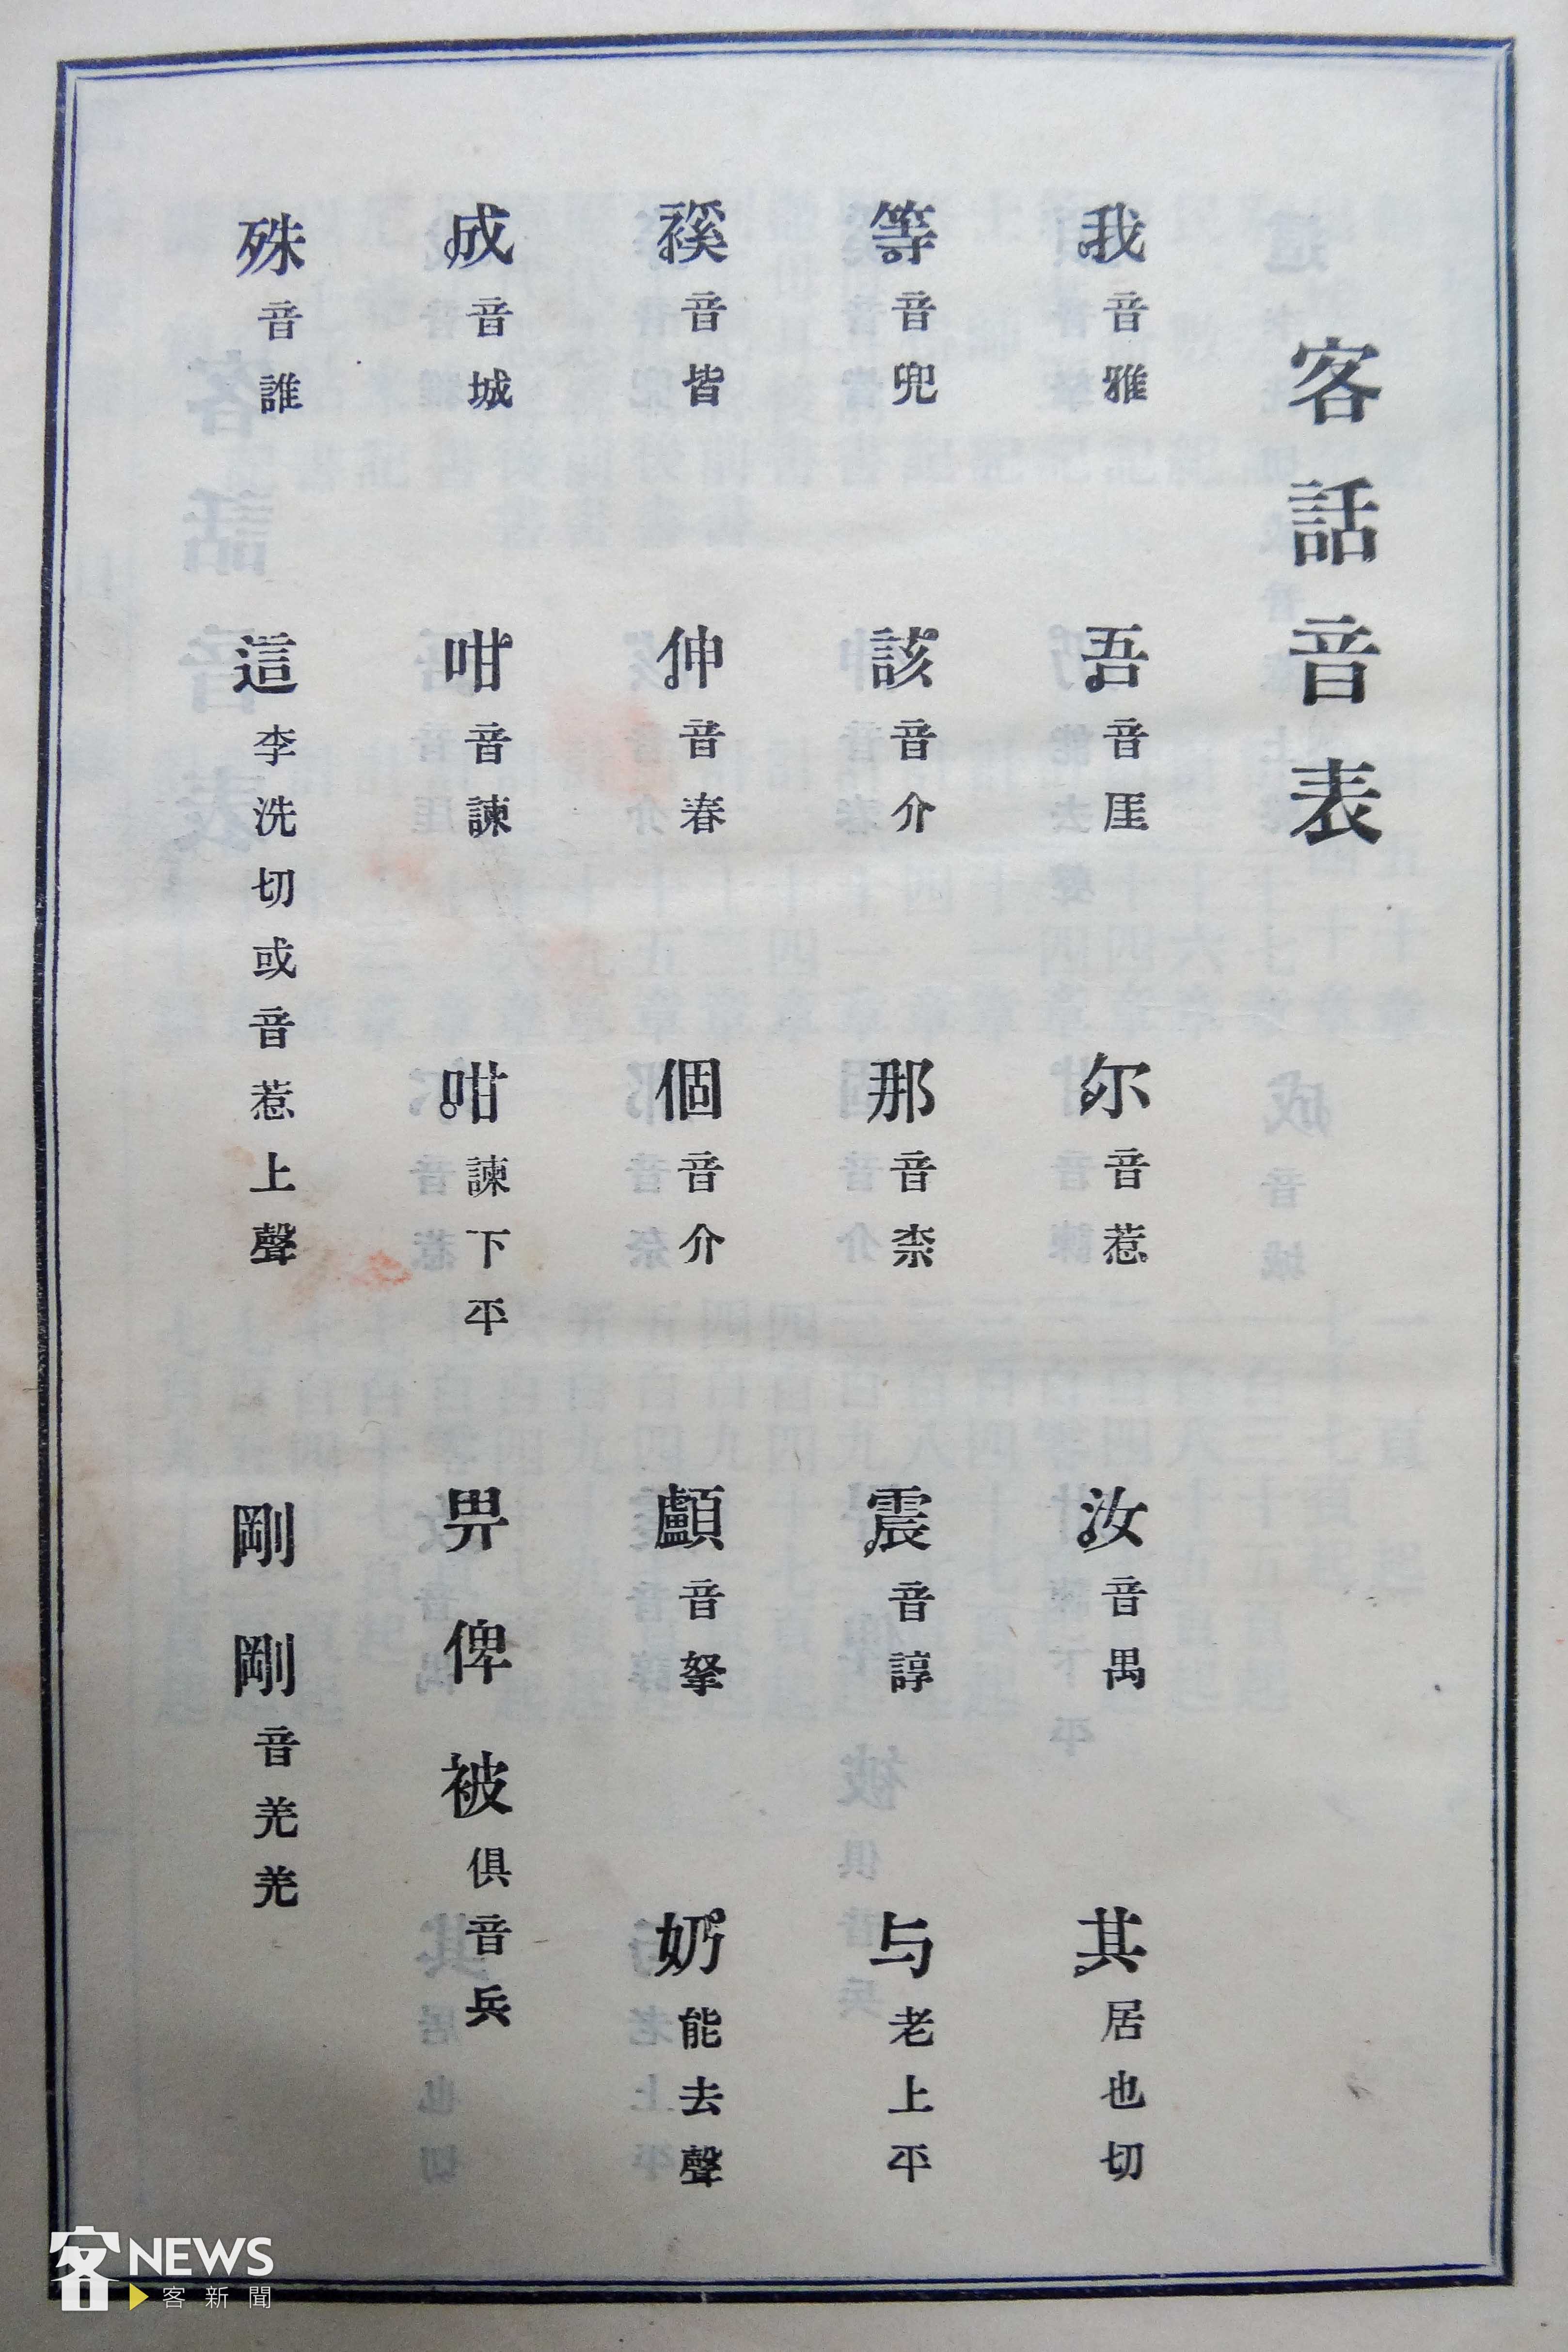 客話音表
我音雅 吾音厓 尔音惹 汝音禺 其居也切
等音兜 該音介 那音柰 震音諄 与老上平
禤音皆 伸音春 個音介 顱音拏 奶能去聲
成音城 咁音諫 咁諫下平 畀俾被俱音兵
殊音誰 這李洗切或音惹上聲 剛剛音羌羌
客NEWS
客新聞